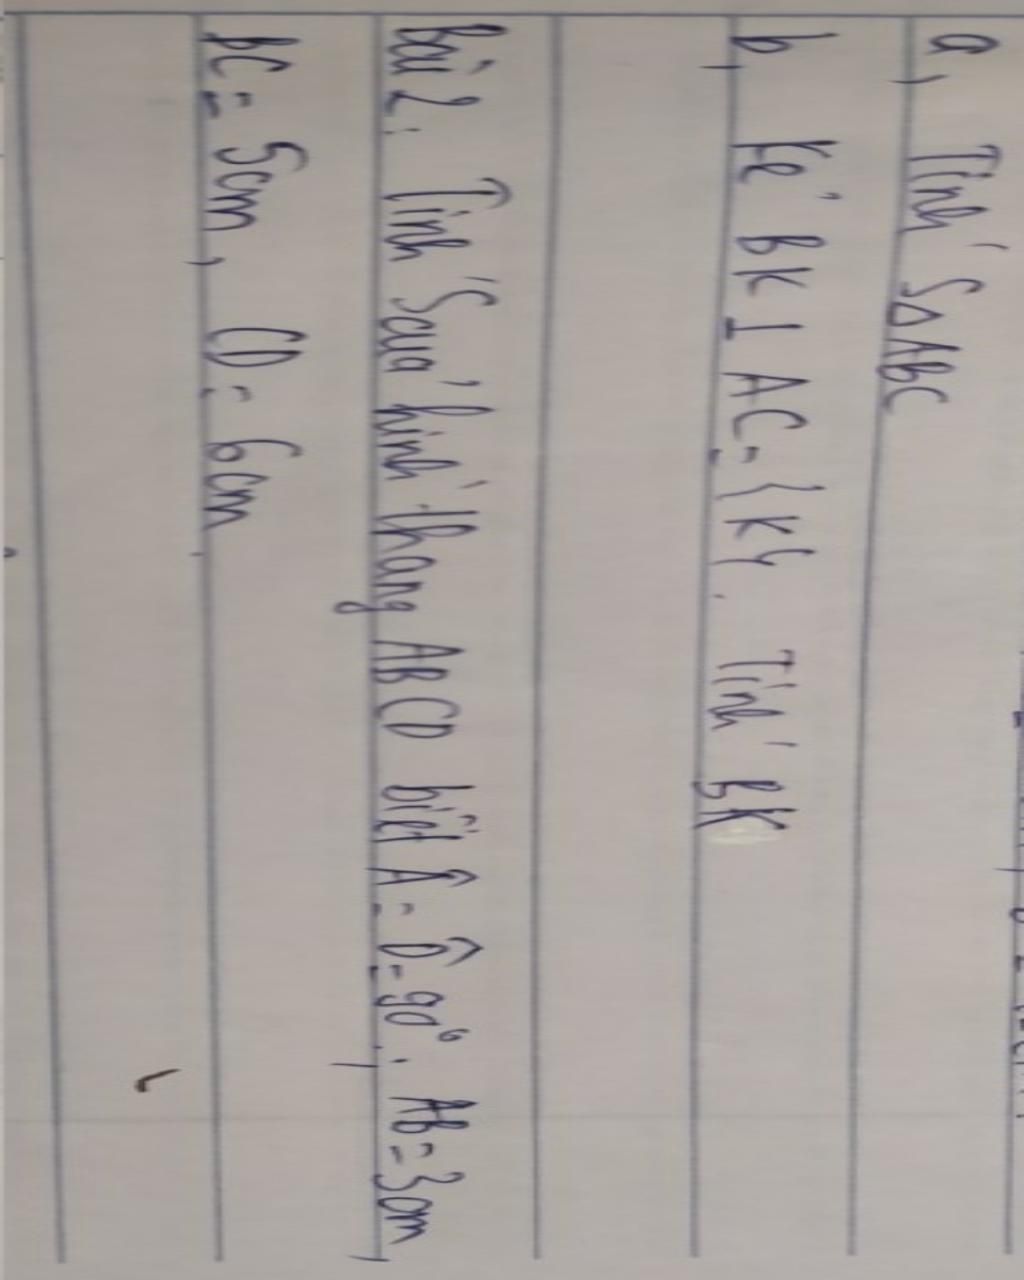 a, Tính S△ABC
b, Kẻ BK ⊥ AC = {K}. Tính BK
Bài 2: Tính S của hình thang ABCD biết Â = D̂ = 90°, AB = 3cm,
BC = 5cm, CD = 6cm